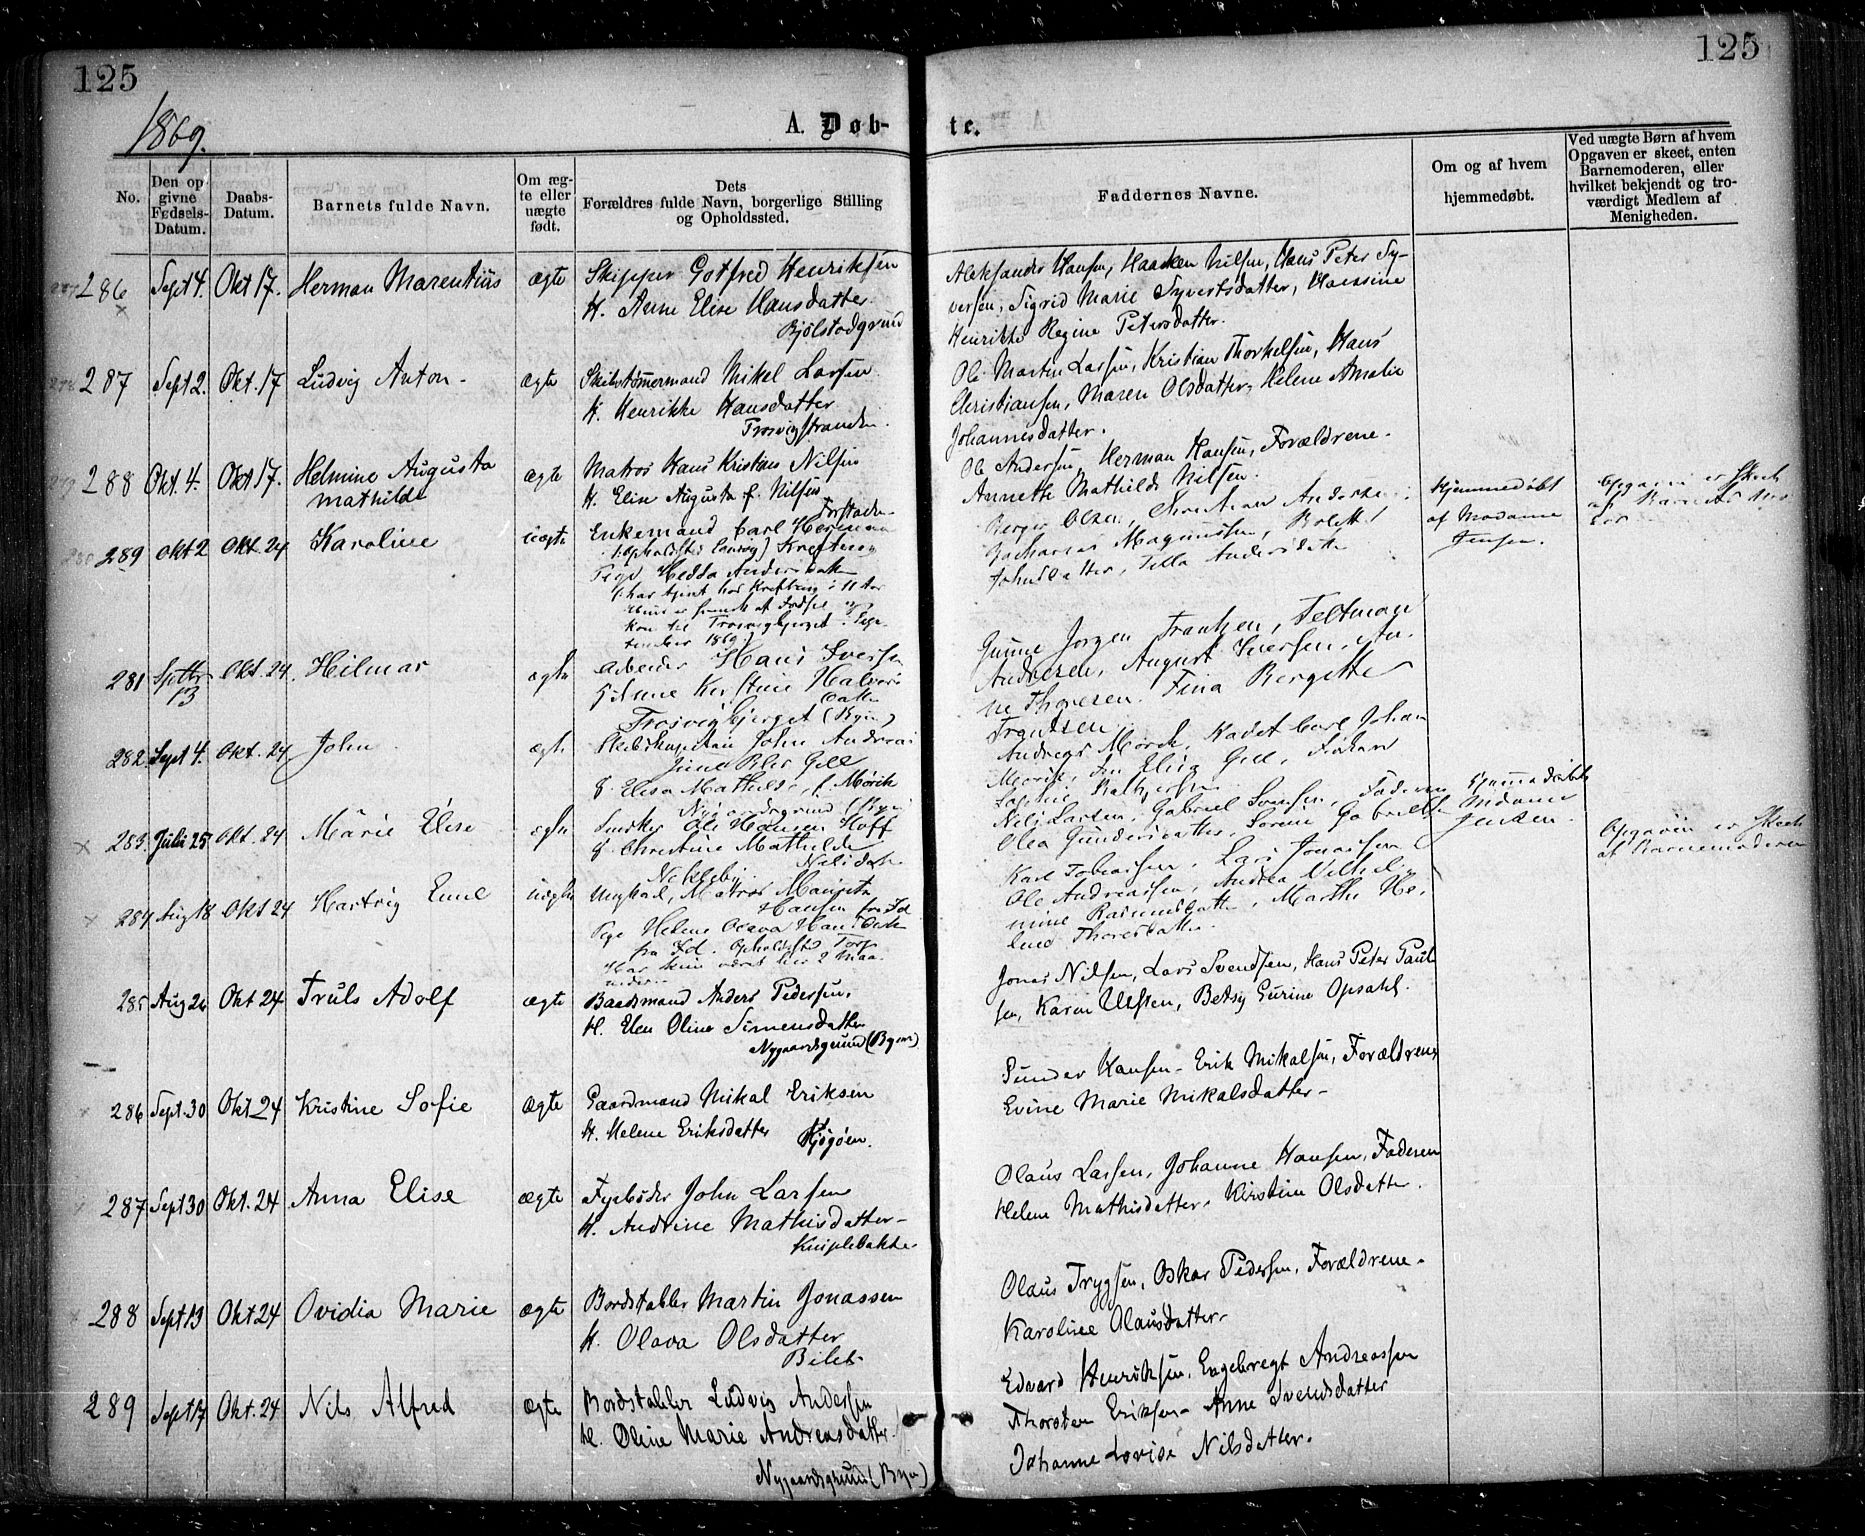 125
125
1869.
A. Døb-
te.
No.
Den op
givne
Fødsels-
Datum.
Daabs-
Datum.
Barnets fulde Navn.
Om æg-
te eller
uægte
født.
Dets
Forældres fulde Navn, borgerlige Stilling
og Opholdssted.
Faddernes Navne.
Om og af hvem
hjemmedøbt.
Ved uægte Børn af hvem
Opgaven er skeet, enten
Barnemoderen, eller
hvilket bekjendt og tro-
værdigt Medlem af
Menigheden.
286 Sept 4. Okt 17. Herman Marentius ægte Skipper Gotfred Henriksen
H. Anne Elise Hansdatter
Bjølstadgrund
Aleksander Hansen, Haaken Nilsen, Hans Peter Sy-
versen, Sigrid Marie Syvertsdatter, Hansine
Henrikke Regine Petersdatter.
287 Sept 2. Okt. 17 Ludvig Anton - ægte Skibstømmermand Mikel Larsen
H. Henrikke Hansdatter
Trosvigstranden.
Ole Martin Larsen, Kristian Thorkelsen, Hans
Christiansen, Maren Olsdatter, Helene Amalie
Johannesdatter.
288 Okt. 4. Okt 17. Helmine Augusta
Mathilde
ægte Matros Hans Kristian Nilsen
H. Elise Augusta f. Nilsen
Forstaden
Ole Andersen, Herman Hansen, Forældrene.
Annette Mathilde Nilsen.
289 Okt 2 Okt. 24 Karoline uægte Enkemand Carl Herman
Pige Hedda Andersdatter
1869.)
Berger Olsen, Christian
Zacharias Magnussen,
Hjemmedøbt
af Madamme
Jensen.
Opgaven er Skeet
af Barnets
281 Septbr
13
Okt. 24. Hilmar ægte Arbeider Hans Iversen
G Anne Kirstine Halvors
datter
Trosvigbjerget (Byen)
Gunne Jørgen Frantzen, Feltman
Andresen, August Iversen, An-
ne Thoresen. Fina Bergitte
Frantzen
282. Sept 4. Okt. 24 John ægte Skibskaptein John Andreas
Gill
G. Elisa Mathilde, f. Mørik
Nygaardsgrund (Byen)
Andreas Mørch, Kadet Carl Johan
Elisa Gill,
283. Juli 25 Okt. 24 Marie Elise ægte Ole Hansen Hoff
G Christine Mathilde
Nilsdatter
Nils Larsen, Gabriel Faderen
Olea Gundersdatter, Sørine
Hjemmedøbt
Madame
Jensen.
284 Aug 18 Okt 24 Hartvig Emil uægte Ungkarl, Matros
Hansen fra Id
Pige Helene Olava Hansdatter
fra Id. Opholdssted Torp
Har kun været her 2 Maa-
neder
Karl Tobiassen, Lars Jonassen
Ole Andreassen, Andrea Vilhel-
mine Rasmusdatter, Marthe He-
lene Thoresdatter.
Opgaven er Skeet
af Barnemoderen
285 Aug 26 Okt 24 Truls Adolf ægte Baadsmand Anders Pedersen,
H. Elen Oline Simensdatter
Nygaardsgrund (Byen)
Jonas Nilsen, Lars Svendsen, Hans Peter Paul-
sen, Karen Ulsten, Betsy Gurine Opsahl.
286 Sept. 30 Okt 24 Kristine Sofie ægte Gaardmand Mikal Eriksen
H. Helene Eriksdatter Kjøgøen.
Gunder Hansen - Erik Mikalsen, Forældrene
Evine Marie Mikalsdatter -
287 Sept 30 Okt. 24 Anna Elise ægte Fyrbøder John Larsen
H. Andrine Mathisdatter -
Kniplebakke.
Olaus Larsen, Johanne Hansen, Faderen
Helene Mathisdatter, Kirstine Olsdatter.
288 Sept 13 Okt 24 Ovidia Marie ægte Bordstabler Martin Jonassen
H. Olava Olsdatter
Bilet
Olaus Trygsen, Oskar Pedersen, Forældrene.
Karoline Olausdatter -
289 Sept 17 Okt. 24 Nils Alfred ægte Bordstabler Ludvig Andersen
H. Oline Marie Andreasdatter
Nygaardsgrund (Byen)
Edvard Henriksen, Engebregt Andreassen
Thorsten Eriksen - Anne Svendsdatter
Johanne Lovise Nilsdatter.